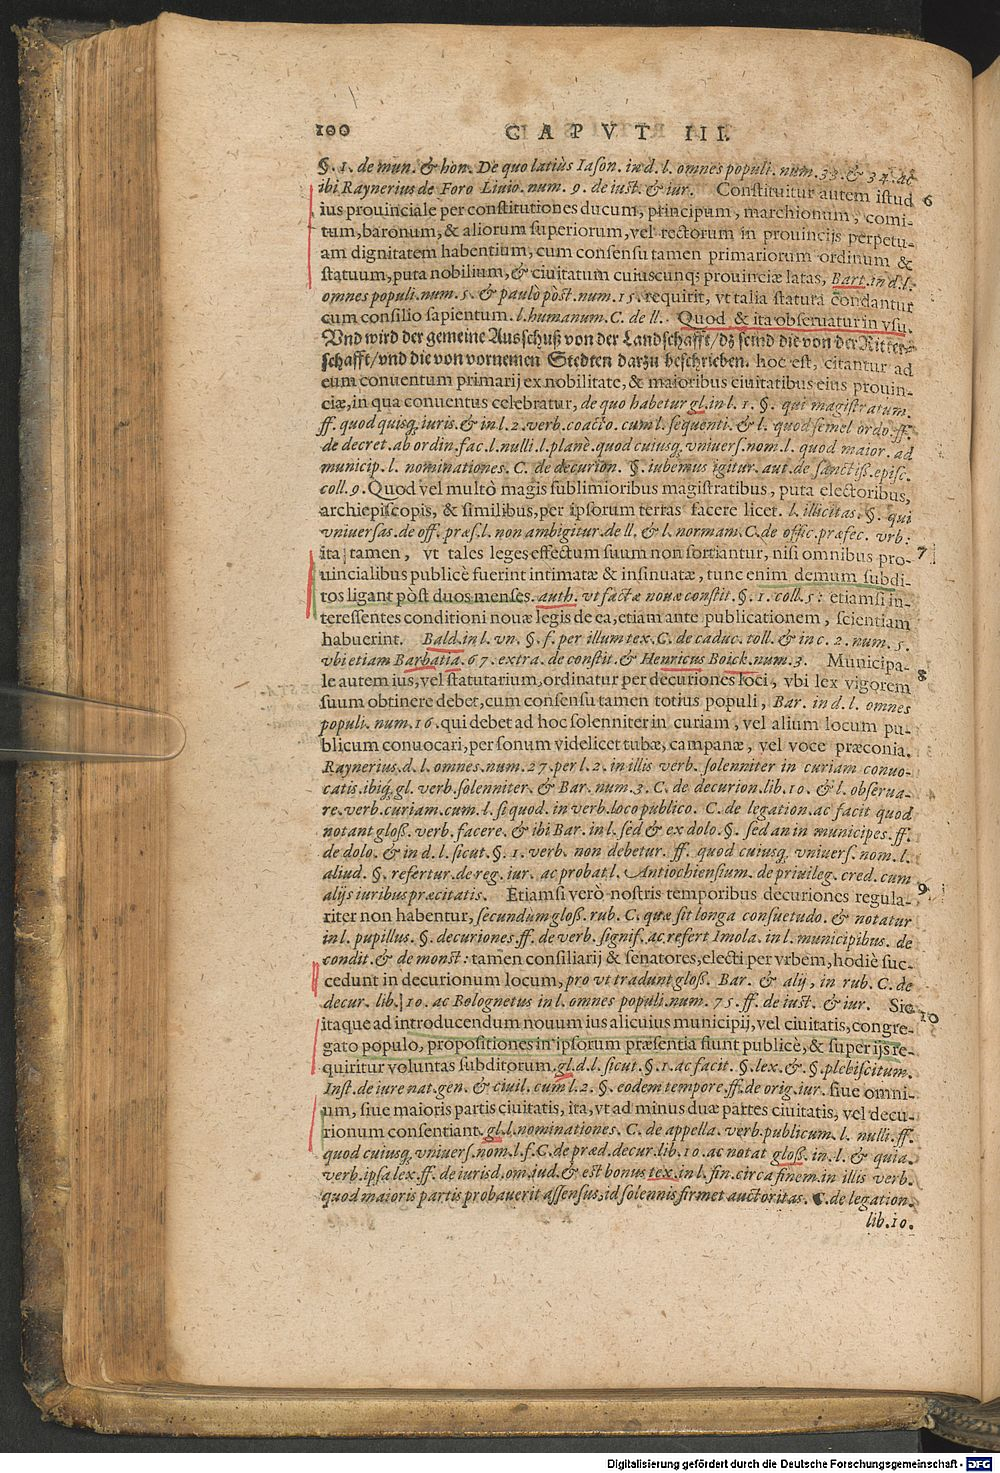 100 CAPVT III.
§. 1. de mun. & hon. De quo latiùs Iason. in d. l. omnes populi. num. 33. & 34. ac
ibi Raynerius de Foro Liuio. num. 9. de iust. & iur. Constituitur autem istud 6
ius prouinciale per constitutiones ducum, principum, marchionum, comi-
tum, baronum, & aliorum superiorum, vel rectorum in prouincijs perpetu-
am dignitatem habentium, cum consensu tamen primariorum ordinum &
statuum, puta nobilium, & ciuitatum cuiuscunq; prouinciæ latas, Bart. in d. l.
omnes populi. num. 5. & paulò pòst. num. 15. requirit, vt talia statuta condantur
cum consilio sapientum. l. humanum. C. de ll. Quod & ita obseruatur in vsu.
Vnd wird der gemeine Ausschuß von der Landschafft/ dz seind die von der Ritter-
schafft/ vnd die von vornemen Stedten darzu beschrieben. hoc est, citantur ad
eum conuentum primarij ex nobilitate, & maioribus ciuitatibus eius prouin-
ciæ, in qua conuentus celebratur, de quo habetur gl. in l. 1. §. qui magistratum.
ff. quod quisq; iuris. & in l. 2. verb. coacto. cum l. sequenti. & l. quod semel ordo. ff.
de decret. ab ordin. fac. l. nulli. l. planè. quod cuiusq; vniuers. nom. l. quod maior. ad
municip. l. nominationes. C. de decurion. §. iubemus igitur. aut. de sanctiß. episc.
coll. 9. Quod vel multò magis sublimioribus magistratibus, puta electoribus,
archiepiscopis, & similibus, per ipsorum terras facere licet. l. illicitas. §. qui
vniuersas. de off. præs. l. non ambigitur. de ll. & l. normam. C. de offic. præfec. vrb:
ita tamen, vt tales leges effectum suum non sortiantur, nisi omnibus pro- 7
uincialibus publicè fuerint intimatæ & insinuatæ, tunc enim demum subdi-
tos ligant pòst duos menses. auth. vt factæ nouæ constit. §. 1. coll. 5: etiamsi in-
teressentes conditioni nouæ legis de ea, etiam ante publicationem, scientiam
habuerint. Bald. in l. vn. §. f. per illum tex. C. de caduc. toll. & in c. 2. num. 5.
vbi etiam Barbatia. 67. extra. de constit. & Henricus Boick. num. 3. Municipa- 8
le autem ius, vel statutarium, ordinatur per decuriones loci, vbi lex vigorem
suum obtinere debet, cum consensu tamen totius populi, Bar. in d. l. omnes
populi. num. 16. qui debet ad hoc solenniter in curiam, vel alium locum pu-
blicum conuocari, per sonum videlicet tubæ, campanæ, vel voce præconia.
Raynerius. d. l. omnes. num. 27. per l. 2. in illis verb. solenniter in curiam conuo-
catis. ibiq; gl. verb. solenniter. & Bar. num. 3. C. de decurion. lib. 10. & l. obserua-
re. verb. curiam. cum. l. si quod. in verb. loco publico. C. de legation. ac facit quod
notant gloß. verb. facere. & ibi Bar. in l. sed & ex dolo. §. sed an in municipes. ff.
de dolo. & in d. l. sicut. §. 1. verb. non debetur. ff. quod cuiusq; vniuers. nom. l.
aliud. §. refertur. de reg. iur. ac probat l. Antiochiensium. de priuileg. cred. cum
alijs iuribus præcitatis. Etiamsi verò nostris temporibus decuriones regula- 9
riter non habentur, secundum gloß. rub. C. quæ sit longa consuetudo. & notatur
in l. pupillus. §. decuriones. ff. de verb. signif. ac refert Imola. in l. municipibus. de
condit. & de monst: tamen consiliarij & senatores, electi per vrbem, hodiè suc-
cedunt in decurionum locum, pro vt tradunt gloß. Bar. & alij, in rub. C. de
decur. lib. 10. ac Bolognetus in l. omnes populi. num. 75. ff. de iust. & iur. Sic 10
itaque ad introducendum nouum ius alicuius municipij, vel ciuitatis, congre-
gato populo, propositiones in ipsorum præsentia fiunt publicè, & super ijs re-
quiritur voluntas subditorum. gl. d. l. sicut. §. 1. ac facit. §. lex. & §. plebiscitum.
Inst. de iure nat. gen. & ciuil. cum l. 2. §. eodem tempore. ff. de orig. iur. siue omni-
um, siue maioris partis ciuitatis, ita, vt ad minus duæ partes ciuitatis, vel decu-
rionum consentiant. gl. l. nominationes. C. de appella. verb. publicum. l. nulli. ff.
quod cuiusq; vniuers. nom. l. f. C. de præd. decur. lib. 10. ac notat gloß. in l. & quia.
verb. ipsa lex. ff. de iurisd. om. iud. & est bonus tex. in l. fin. circa finem. in illis verb.
quod maioris partis probauerit assensus, id solennis firmet auctoritas. C. de legation.
lib. 10.
Digitalisierung gefördert durch die Deutsche Forschungsgemeinschaft - DFG